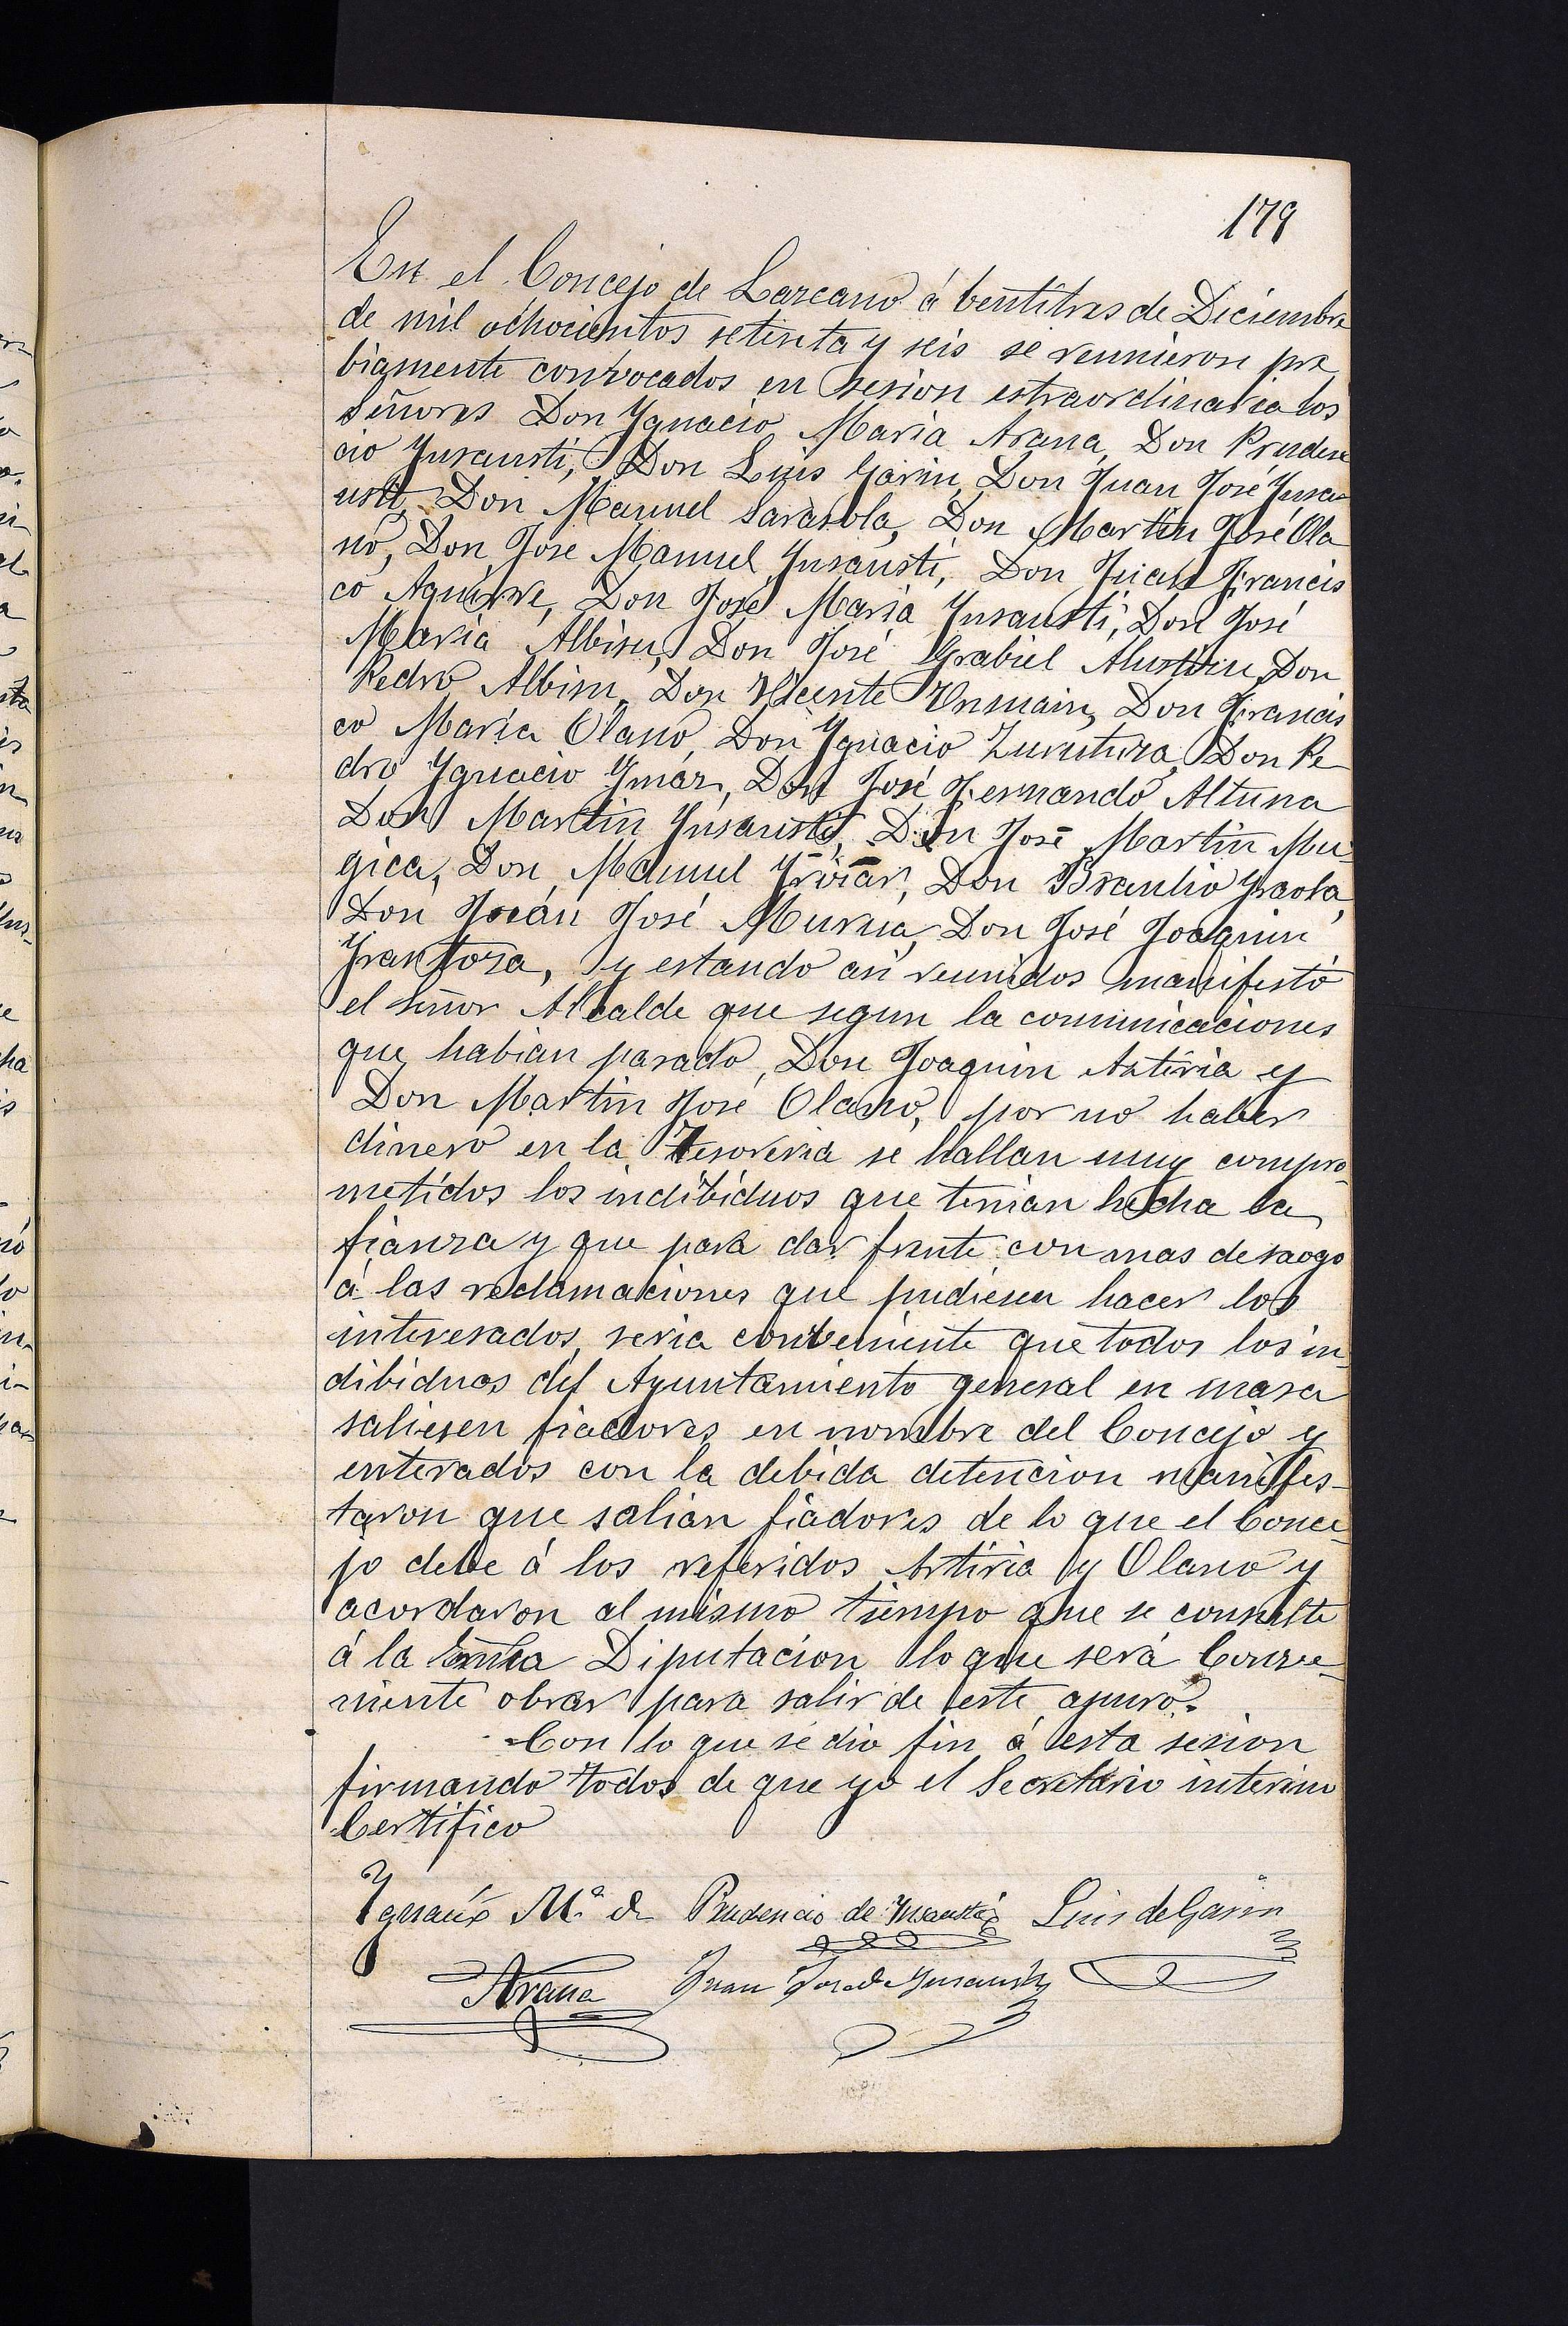 179
En el Concejo de Lazcano á bentitres de Diciembre
de mil ochocientos setenta y seis se reunieron pre
biamente conbocados en sesion estraordinaria los
Señores Don Ygnacio Maria Arana, Don Pruden
cio Ynsausti, Don Luis Garin, Don Juan José Ynsa
usti, Don Manuel Sarasola, Don Martin José Ola
no, Don José Manuel Ynsausti, Don Juan Francis
co Aguirre, Don José Maria Ynsausti, Don José
Maria Albisu, Don José Grabiel Don
Pedro Albisu, Don Vicente Don Francis
co Maria Olano, Don Ygnacio Zurutuza, Don Pe
dro Ygnacio Don José Fernando Altuna
Don Martin Ynsausti, Don José Martin Mu-
gica, Don Manuel Don Braulio Yraola,
Don Juan José Murua, Don José Joaquin
Yrastorza, y estando asi reunidos manifestó
el Señor Alcalde que segun la comunicaciones
que habian pasado, Don Joaquin Astiria y
Don Martin José Olano, por no haber
dinero en la Tesoreria se hallan muy compro-
metidos los indibiduos que tenian hecha la
fianza y que para dar frente con mas desaogo
á las reclamaciones que pudiesen hacer los
interesados, seria conbeniente que todos los in-
dibiduos del Ayuntamiento general en masa
saliesen fiadores en nombre del Concejo y
enterados con la debida detencion manifes-
taron que salian fiadores de lo que el Conce-
jo debe á los referidos Astiria y Olano y
acordaron al mismo tiempo que se consulte
á la Diputacion lo que será Conve-
niente obrar para salir de este apuro.
Con lo que se dio fin á esta sesion
firmando todos de que yo el Secretario interino
Certifico
Ygnacio Mª de Prudencio de Ynsausti Luis de Garin
Arana Juan José de Ynsausti